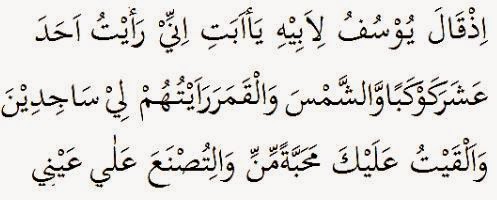 اِذْقَالَ يُوْسُفُ لِاَبِيْهِ يَاَاَبَتِ اِنِّيْ رَأَيْتُ اَحَدَ
عَشَرَكَوْكَبًاوَّالشَّمْسَ وَالْقَمَرَرَاَيْتُهُمْ لِيْ سَاجِدِيْنَ
وَاَلْقَيْتُ عَلَيْكَ مَحَبَّةًمِّنِّ وَلِتُصْنَعَ عَلٰي عَيْنِي